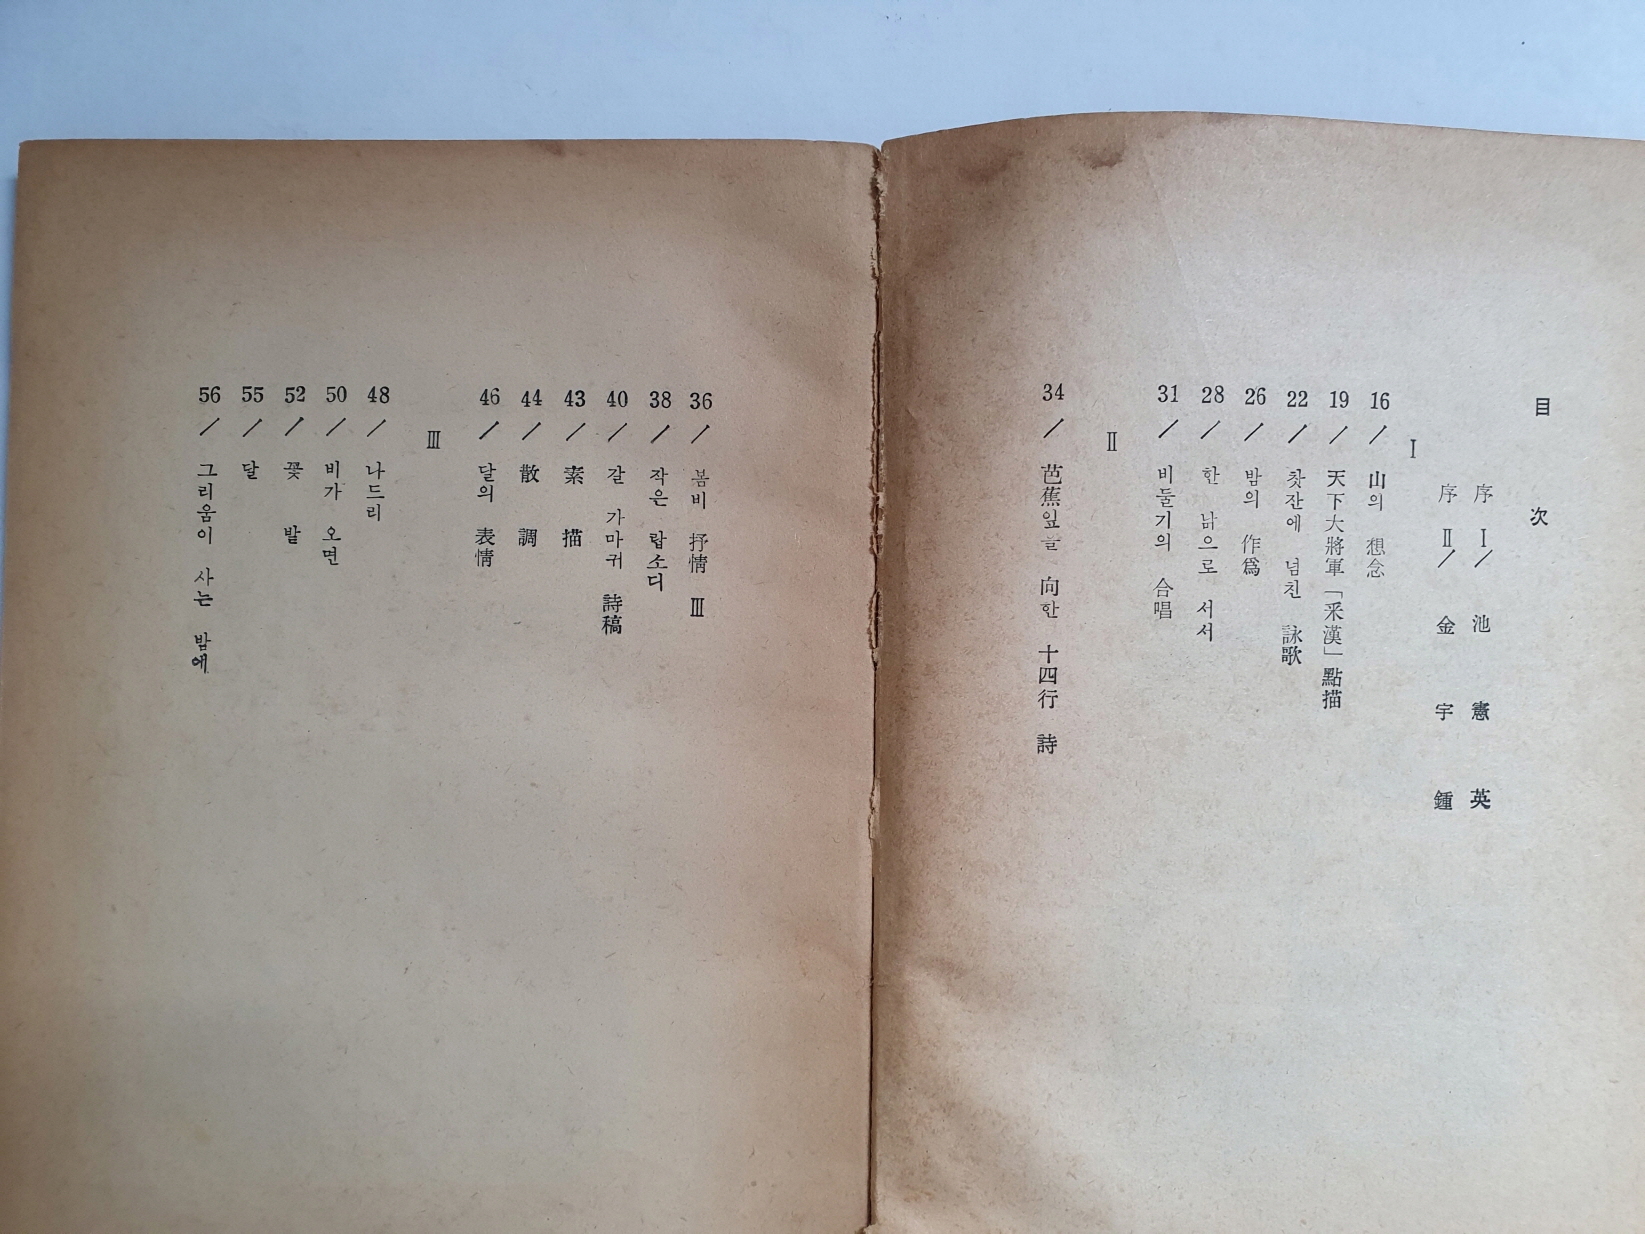 目次
序 Ⅰ／池憲英
序 Ⅱ／金宇鍾
Ⅰ
16／山의 想念
19／天下大將軍「釆漢」點描
22／찻잔에 넘친 詠歌
26／밤의 作爲
28／한 낡으로 서서
31／비둘기의 合唱
Ⅱ
34／芭蕉잎을 向한 十四行 詩
36／봄비 抒情 Ⅲ
38／작은 랍소디
40／갈 가마귀 詩稿
43／素描
44／散調
46／달의 表情
Ⅲ
48／나드리
50／비가 오면
52／꽃 발
55／달
56／그리움이 사는 밤에